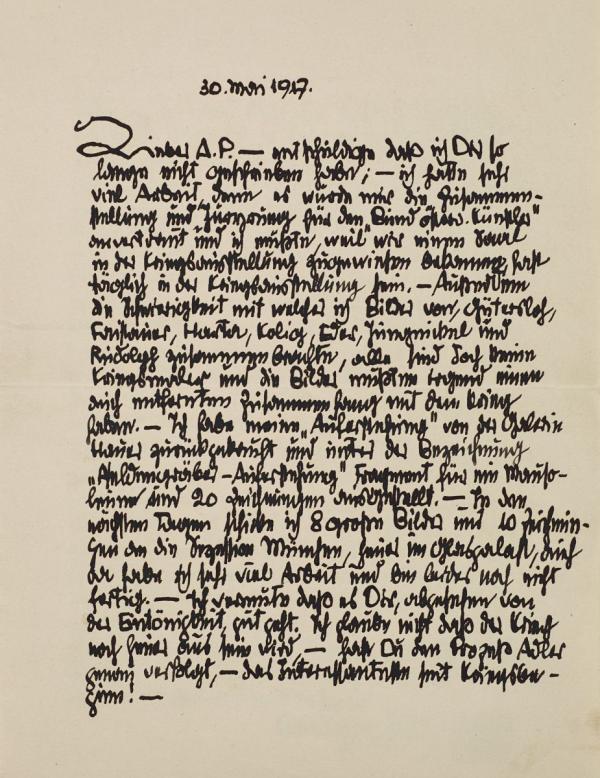 30. Mai 1917.
Lieber A.P. — entschuldige daß ich Dir so
lange nicht geschrieben habe; — ich hatte sehr
viel Arbeit denn es wurde mir die Zusammen-
stellung und Jurierung für den „Bund österr. Künstler"
anvertraut und ich mußte, weil wir einen Saal
in der Kriegsausstellung zugewiesen bekamen, fast
täglich in der Kriegsausstellung sein. — Außerdem
die Schwierigkeit mit welcher ich Bilder von, Gütersloh,
Faistauer, Harta, Kolig, Eder, Jungnickel und
Rudolph zusammenbrachte, alle sind doch keine
Kriegsmaler und die Bilder mußten irgend einen
auch entfernten Zusammenhang mit dem Krieg
haben. — Ich habe meine „Auferstehung" von der Galerie
Hauer zurückgebraucht und unter der Bezeichnung
„Heldengräber – Auferstehung" Fragment für ein Mauso-
leum und 20 Zeichnungen ausgestellt. — In den
nächsten Tagen schicke ich 8 große Bilder und 10 Zeichnun-
gen an die Sezession München, heuer im Glaspalast, auch
da habe ich sehr viel Arbeit und bin leider noch nicht
fertig. — Ich vermute daß es Dir, abgesehen von
der Eintönigkeit gut geht. Ich glaube nicht daß der Krieg
noch heuer aus sein wird, — hast Du den Prozeß Adler
genau verfolgt, — das Interessanteste seit Kriegsbe-
ginn! —